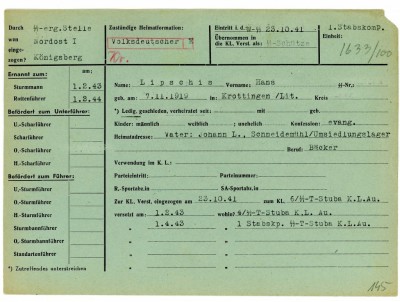 Durch ᛋᛋ-erg.Stelle
was Nordost I
einge-
zogen? Königsberg
Zuständige Heimatformation:
Volksdeutscher
Eintritt i.d ᛋᛋ 23.10.41
Übernommen in
die KL. Verst. als: ᛋᛋ-Schütze
1.Stabskomp.
Einheit:
1633/100
Ernannt zum: am:
Sturmmann 1.2.43
Rottenführer 1.2.44
Befördert zum Unterführer:
U.-Scharführer
Scharführer
O.-Scharführer
H.-Scharführer
Befördert zum Führer:
U.-Sturmführer
O.-Sturmführer
H.-Sturmführer
Sturmbannführer
O. Sturmbannführer
Standartenführer
*) Zutreffendes unterstreichen
Name: Lipschis Vorname: Hans ᛋᛋ-Nr.:
geb. am 7.11.1919 in Krottingen/Lit. Kreis
*) Ledig, geschieden, verheiratet seit: mit: geb. am:
Kinder: männlich weiblich eheliche Konfession: evang.
Heimatadresse: Vater: Johann L., Schneidemühl/Umsiedlungslager
Beruf: Bäcker
Verwendung im K.L.:
Parteieintritt: Parteinummer:
R.-Sportabz. in SA-Sportabz. in
Zur KL. Verst. eingezogen am 23.10.41 zum KL. 6/ᛋᛋ-T-Stuba K.L.Au.
versetzt am: 1.2.43 wohin? 4/ᛋᛋ-T-Stuba K.L. Au.
" 1.4.43 " 1 Stabskp. ᛋᛋ-T-Stuba K.L.Au.
" "
" "
145